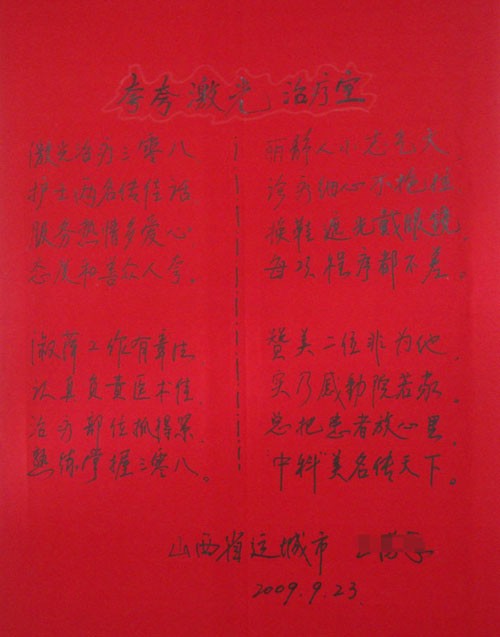 夸夸激光治疗室
激光治疗三零八
护士病号传佳话
服务热情多爱心
态度和善众人夸。
淑萍工作有章法
认真负责医术佳
治疗部位抓得紧
熟练掌握三零八。
丽静人小志气大
治疗细心不拖拉
换鞋遮光戴眼镜
每项程序都不差。
赞美二位非为他
实乃感动院若家。
总把患者放心里
中科美名传天下。
山西省运城市
2009.9.23